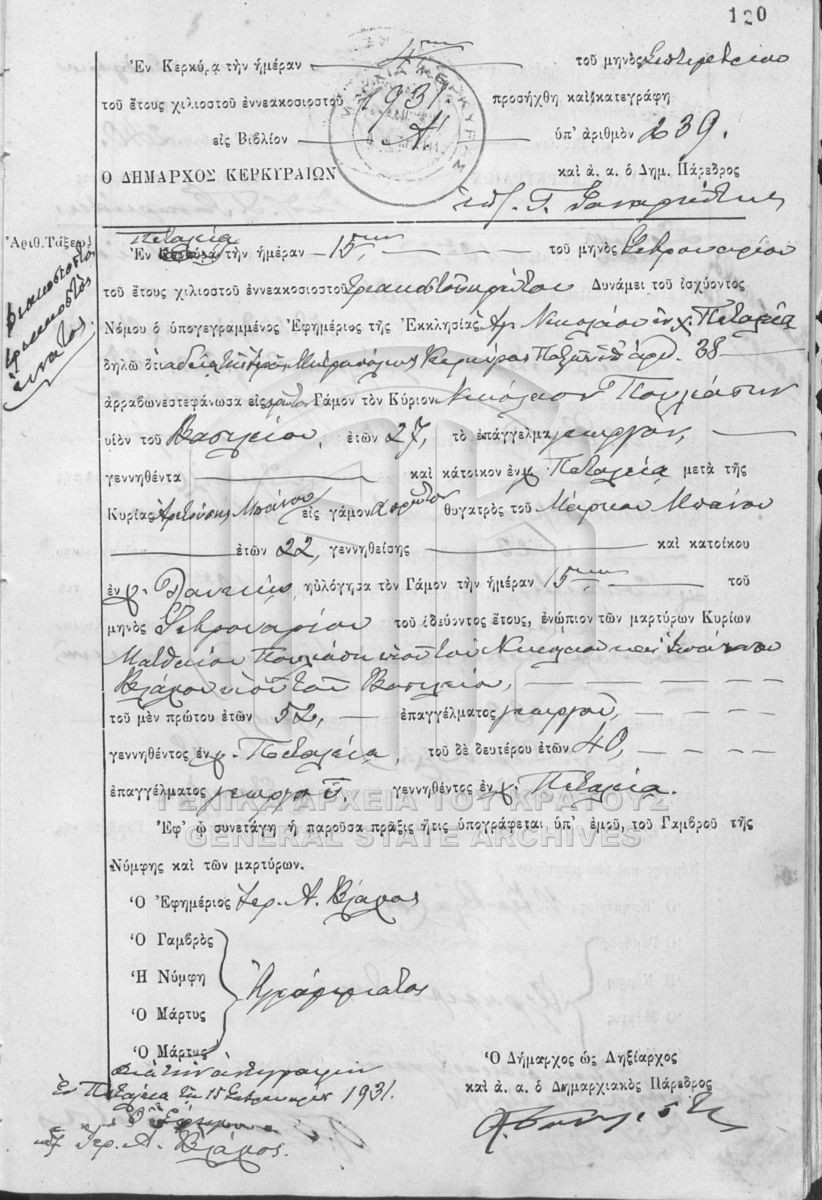 120
Ἐν Κερκύρᾳ τὴν ἡμέραν 4ην τοῦ μηνὸς Σεπτεμβρίου
τοῦ ἔτους χιλιοστοῦ ἐννεακοσιοστοῦ 1931 προσήχθη καὶ κατεγράφη
εἰς Βιβλίον Α ὑπ' ἀριθμὸν 239.
Ο ΔΗΜΑΡΧΟΣ ΚΕΡΚΥΡΑΙΩΝ καὶ ἀ. α. ὁ Δημ. Πάρεδρος
Πεταλείᾳ
Ἀριθ. Τάξεως
διακοσιοστὸς
τριακοστὸς
ἔννατος.
Ἐν Κερκύρᾳ τὴν ἡμέραν 15ην τοῦ μηνὸς Φεβρουαρίου
τοῦ ἔτους χιλιοστοῦ ἐννεακοσιοστοῦ τριακοστοῦ πρώτου Δυνάμει τοῦ ἰσχύοντος
Νόμου ὁ ὑπογεγραμμένος Ἐφημέριος τῆς Ἐκκλησίας Ἁγ. Νικολάου ἐν χ. Πεταλείᾳ
δηλῶ ὅτι ἀδείᾳ τῆς Ἱερᾶς Μητροπόλεως Κερκύρας Παξῶν ὑπ' ἀριθ. 38
ἀρραβωνεστεφάνωσα εἰς πρῶτον Γάμον τὸν Κύριον Νικόλαον Πουλιάσην
υἱὸν τοῦ Βασιλείου, ἐτῶν 27, τὸ ἐπάγγελμα γεωργὸν,
γεννηθέντα καὶ κάτοικον ἐν χ. Πεταλείᾳ μετὰ τῆς
Κυρίας Ἀρετούσης Μπάνου εἰς γάμον πρῶτον θυγατρὸς τοῦ Μάρκου Μπάνου
ἐτῶν 22, γεννηθείσης καὶ κατοίκου
ἐν χ. ηὐλόγησα τὸν Γάμον τὴν ἡμέραν 15ην τοῦ
μηνὸς Φεβρουαρίου τοῦ ὁδεύοντος ἔτους, ἐνώπιον τῶν μαρτύρων Κυρίων
Ματθαίου Πουλιάση υἱοῦ τοῦ Νικολάου καὶ
Βλάχου υἱοῦ τοῦ Βασιλείου,
τοῦ μὲν πρώτου ἐτῶν 52, ἐπαγγέλματος γεωργοῦ,
γεννηθέντος ἐν χ. Πεταλείᾳ, τοῦ δὲ δευτέρου ἐτῶν 40,
ἐπαγγέλματος γεωργοῦ, γεννηθέντος ἐν χ. Πεταλείᾳ.
ΓΕΝΙΚΑ ΑΡΧΕΙΑ ΤΟΥ ΚΡΑΤΟΥΣ
GENERAL STATE ARCHIVES
Ἐφ' ᾧ συνετάγη ἡ παροῦσα πρᾶξις ἥτις ὑπογράφεται ὑπ' ἐμοῦ, τοῦ Γαμβροῦ τῆς
Νύμφης καὶ τῶν μαρτύρων.
Ὁ Ἐφημέριος Ἱερ. Α. Βλάχος
Ὁ Γαμβρὸς
Ἡ Νύμφη
Ὁ Μάρτυς
Ὁ Μάρτυς
Ἀγράμματος
Διὰ τὴν ἀντιγραφὴν
Ἐν Πεταλείᾳ τῇ 15 Φεβρουαρίου 1931.
Ὁ Ἐφημέριος
Ἱερ. Α. Βλάχος.
Ὁ Δήμαρχος ὡς Ληξίαρχος
καὶ ἀ. α. ὁ Δημαρχιακὸς Πάρεδρος